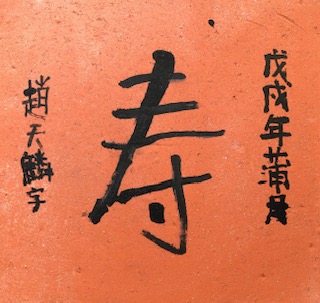 戊戌年蒲月
寿
趙天麟字